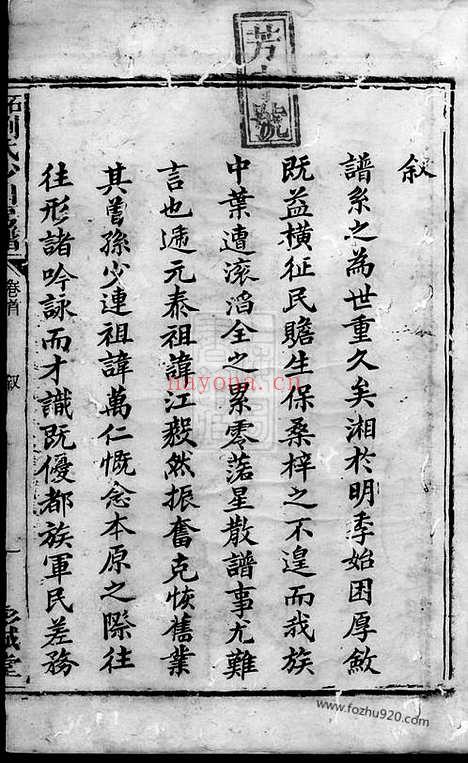 叙
譜系之為世重久矣湘於明季始困厚斂
既益橫征民贍生保桑梓之不遑而我族
中葉遭滚滔全之累零落星散譜事尤難
言也遞元泰祖諱江毅然振奮克恢舊業
其曾孫少連祖諱萬仁慨念本原之際往
往形諸吟詠而才識既優都族軍民差務
卷首
叙
一
nayona.cn
www.fozhu920.com